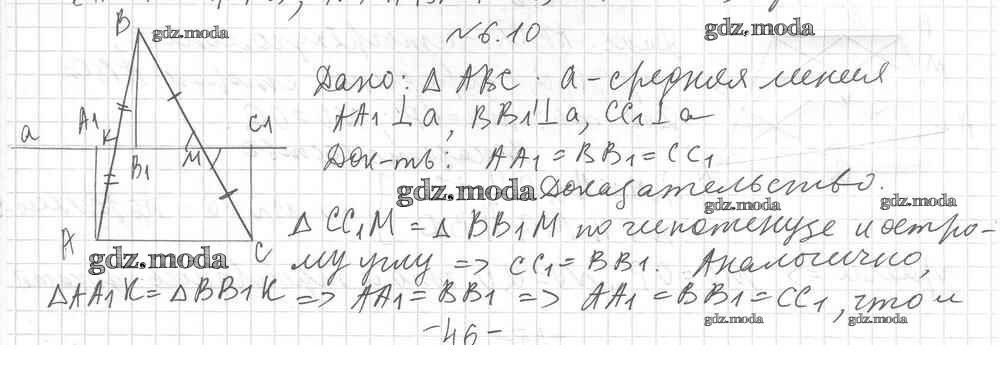 №6.10
Дано: Δ ABC. a - средняя линия
AA1 ⊥ a, BB1 ⊥ a, CC1 ⊥ a
Док-ть: AA1 = BB1 = CC1
Доказательство.
Δ CC1M = Δ BB1M по гипотенузе и остро-
му углу => CC1 = BB1. Аналогично,
ΔAA1K = ΔBB1K => AA1 = BB1 => AA1 = BB1 = CC1, что и
-46-
B
a
A1
K
B1
M
C1
A
C
gdz.moda
gdz.moda
gdz.moda
gdz.moda
gdz.moda
gdz.moda
gdz.moda
gdz.moda